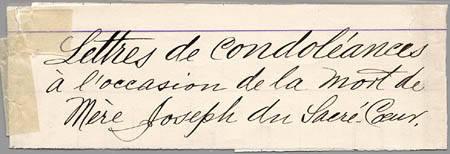 Lettres de condoléances
à l'occasion de la mort de
Mère Joseph du Sacré-Cœur.